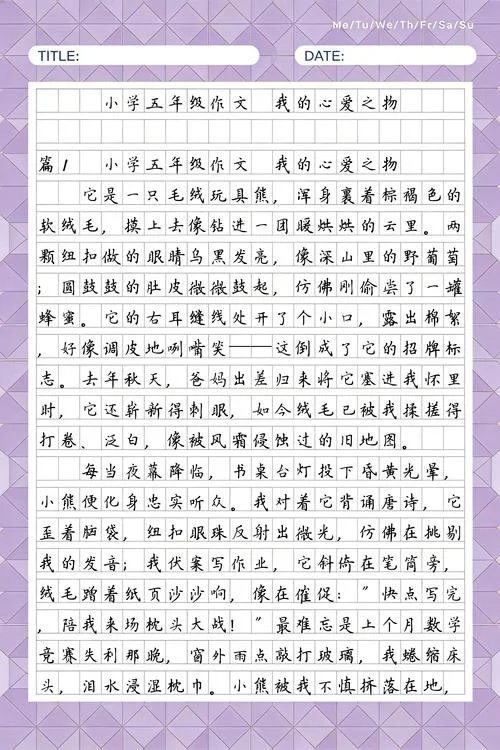 Me/Tu/We/Th/Fr/Sa/Su
TITLE: DATE:
小学五年级作文 我的心爱之物
篇1 小学五年级作文 我的心爱之物
它是一只毛绒玩具熊，浑身裹着棕褐色的
软绒毛，摸上去像钻进一团暖烘烘的云里。两
颗纽扣做的眼睛乌黑发亮，像深山里的野葡萄
；圆鼓鼓的肚皮微微鼓起，仿佛刚偷尝了一罐
蜂蜜。它的右耳缝线处开了个小口，露出棉絮
，好像调皮地咧嘴笑——这倒成了它的招牌标
志。去年秋天，爸妈出差归来将它塞进我怀里
时，它还崭新得刺眼，如今绒毛已被我揉搓得
打卷、泛白，像被风霜侵蚀过的旧地图。
每当夜幕降临，书桌台灯投下昏黄光晕，
小熊便化身忠实听众。我对着它背诵唐诗，它
歪着脑袋，纽扣眼珠反射出微光，仿佛在挑剔
我的发音；我伏案写作业，它斜倚在笔筒旁，
绒毛蹭着纸页沙沙响，像在催促："快点写完
，陪我来场枕头大战！"最难忘是上个月数学
竞赛失利那晚，窗外雨点敲打玻璃，我蜷缩床
头，泪水浸湿枕巾。小熊被我不慎挤落在地，